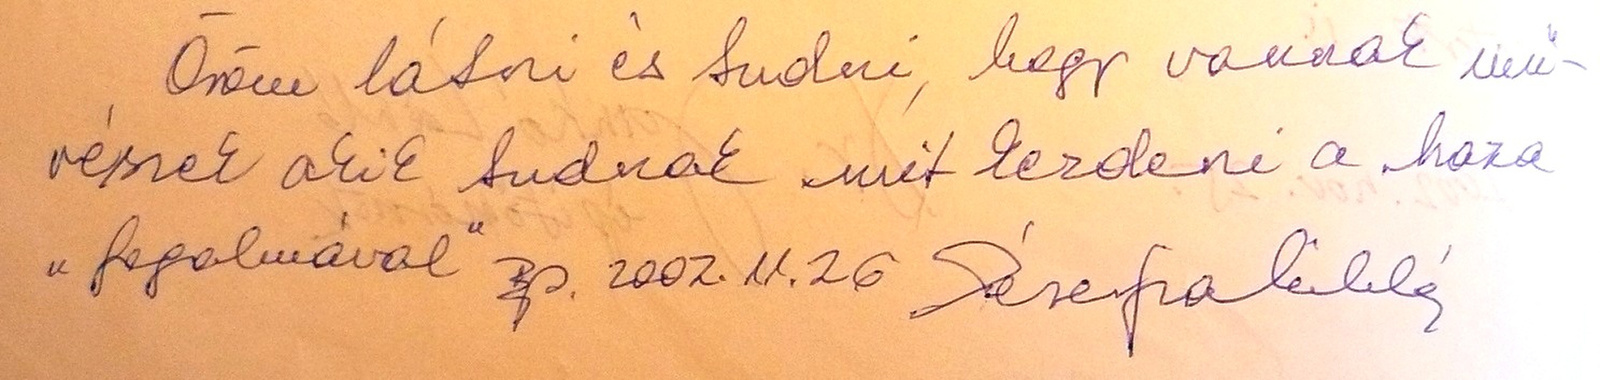 Öröm látni és tudni, hogy vannak mű-
vészek akik tudnak mit kezdeni a haza
„fogalmával" Bp. 2002.11.26